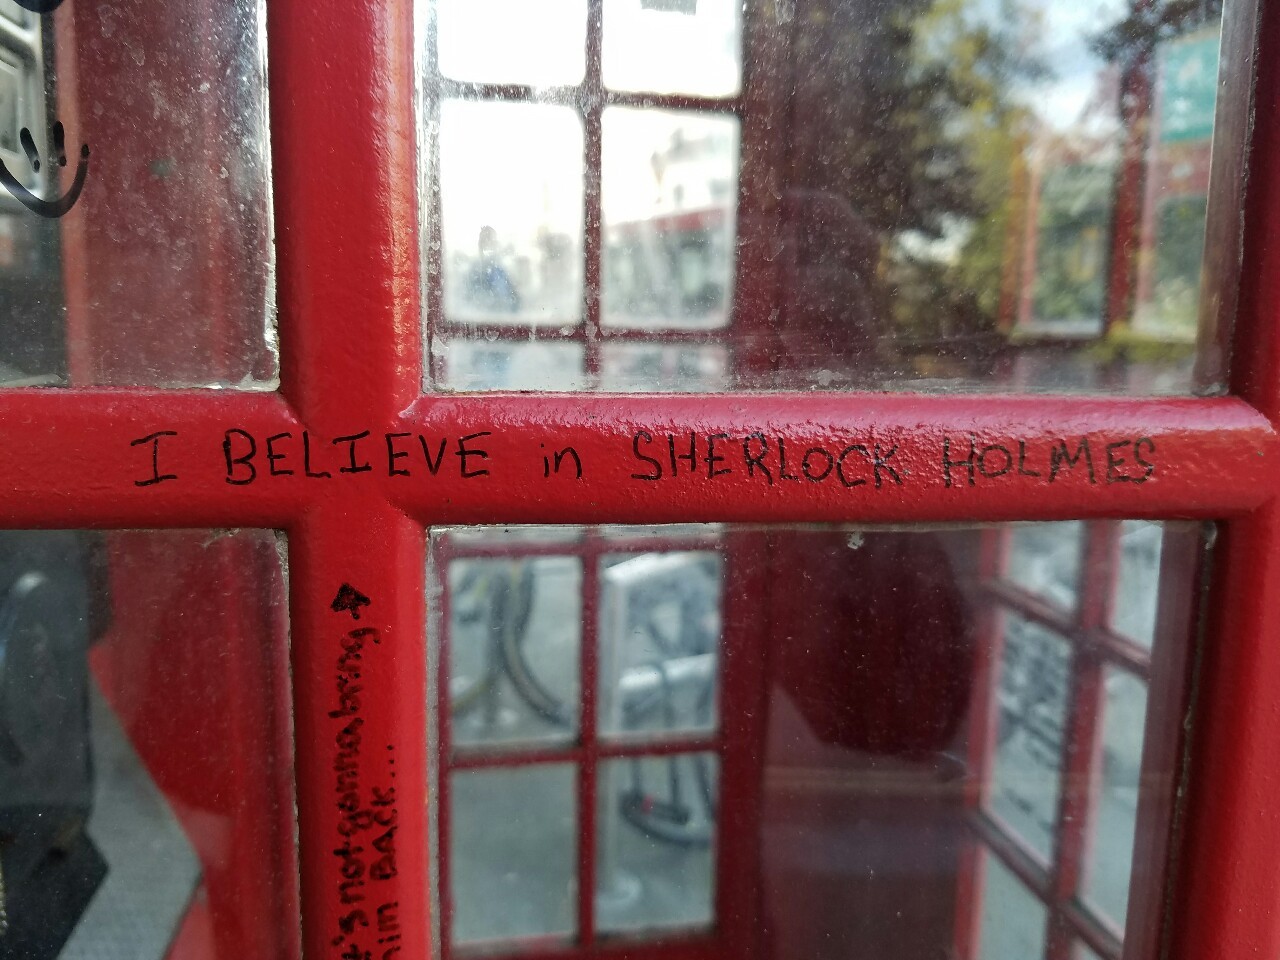 I BELIEVE in SHERLOCK HOLMES
t's not gonna bring
him BACK...